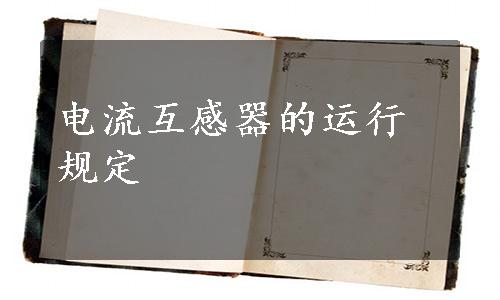 电流互感器的运行
规定